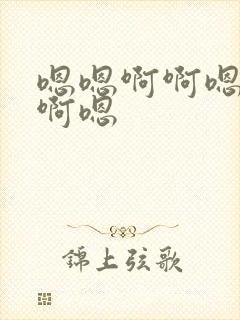 嗯嗯啊啊嗯
啊嗯
錦上弦歌